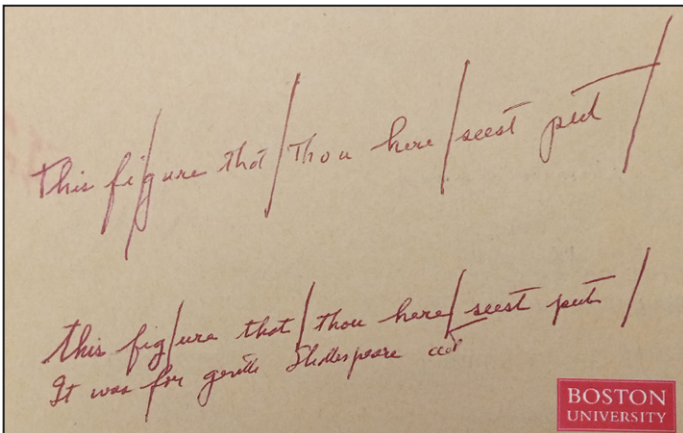 This fi/gure that/Thou here/seest put/
this fig/ure that/thou here/seest put/
It was for gentle Shakespeare cut
BOSTON
UNIVERSITY